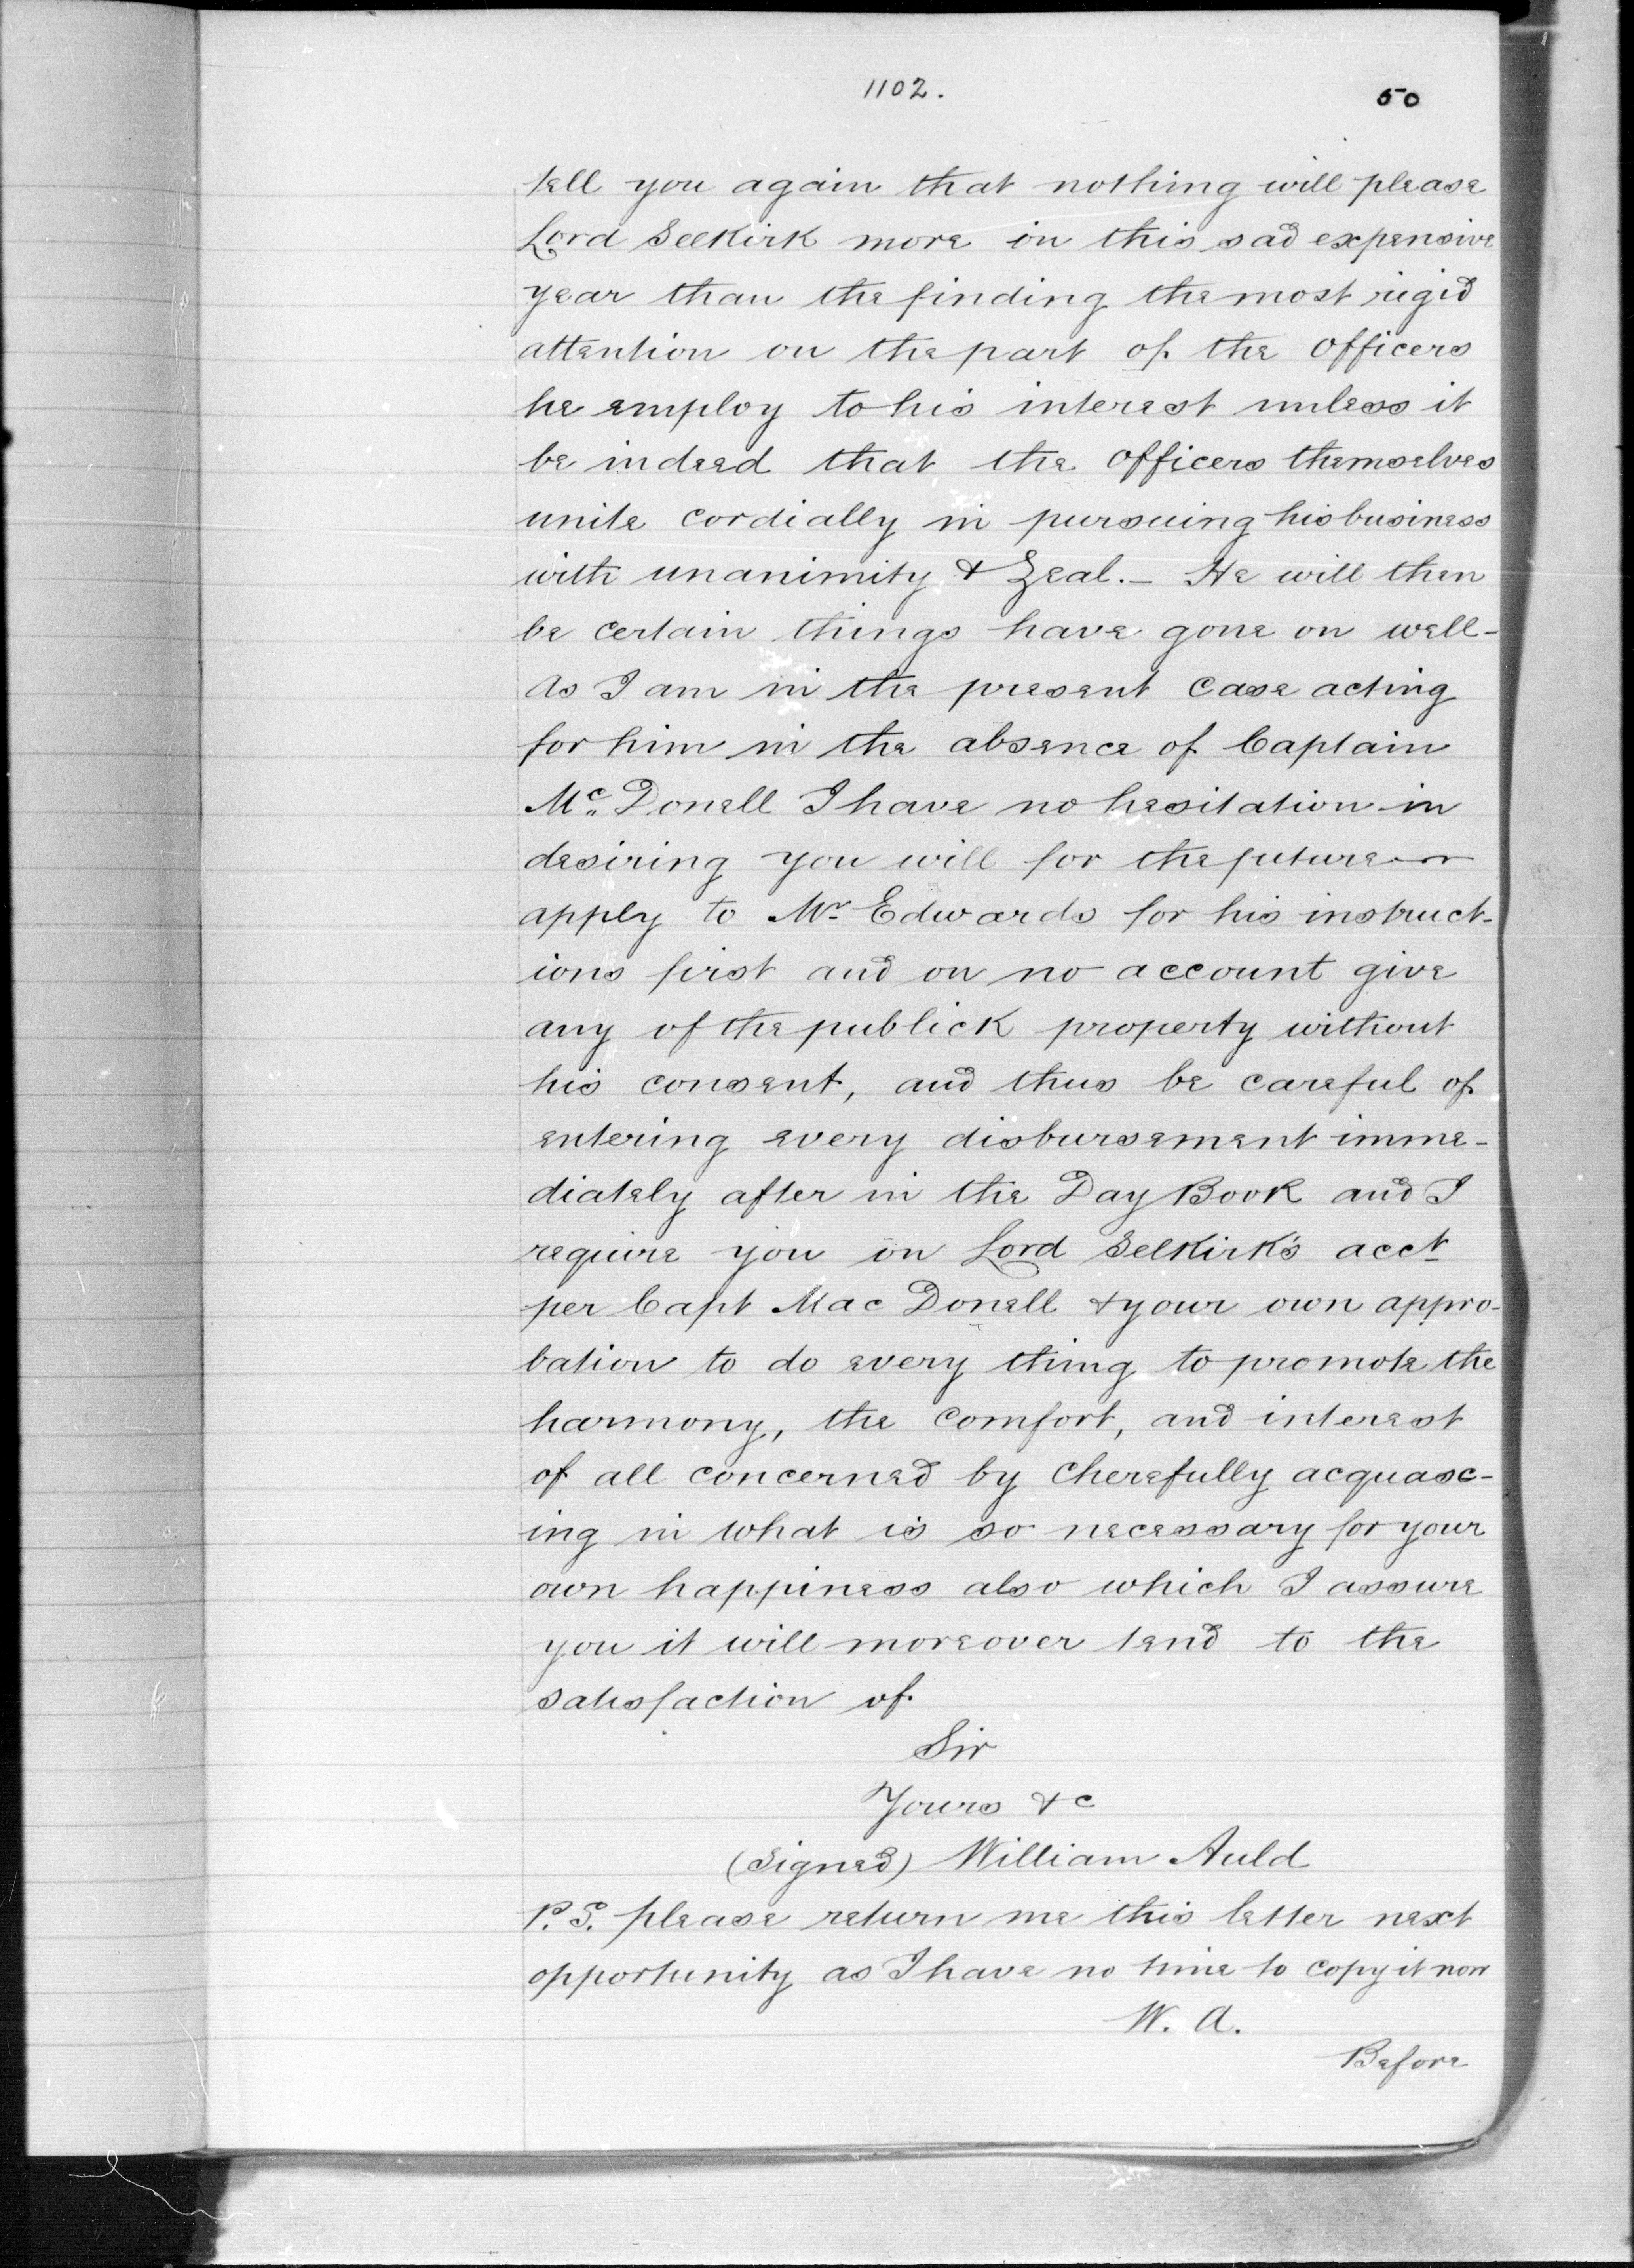 1102.
50
tell you again that nothing will please
Lord Selkirk more in this sad expensive
year than the finding the most rigid
attention on the part of the officers
he employ to his interest unless it
be indeed that the officers themselves
unite cordially in pursuing his business
with unanimity & Zeal. - He will then
be certain things have gone on well -
As I am in the present case acting
for him in the absence of Captain
Mc Donell I have no hesitation in
desiring you will for the future
apply to Mr Edwards for his instruct-
ions first and on no account give
any of the publick property without
his consent, and thus be careful of
entering every disbursement imme-
diately after in the Day Book and I
require you on Lord Selkirk's acct
per Capt Mac Donell & your own appro-
bation to do every thing to promote the
harmony, the comfort, and interest
of all concerned by cherefully acquasc-
ing in what is so necessary for your
own happiness also which I assure
you it will moreover tend to the
satisfaction of
Sir
Yours &c
(Signed) William Auld
P.S. please return me this letter next
opportunity as I have no time to copy it now
W. A.
Before